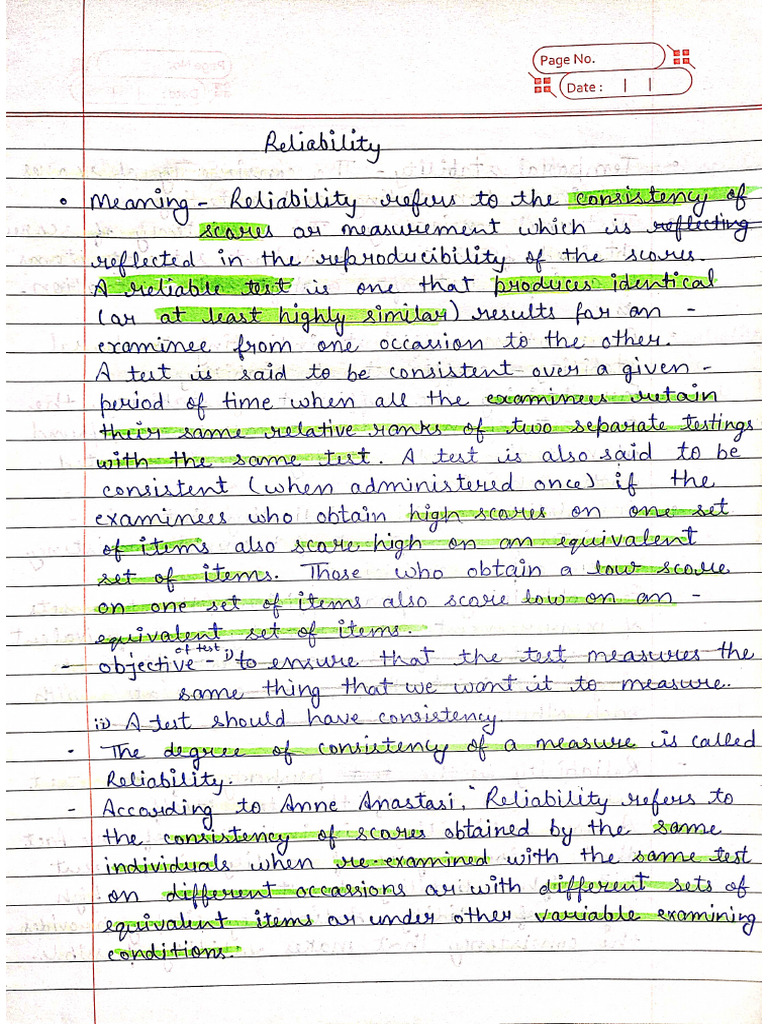 Page No.
Date: | |
Reliability
• Meaning - Reliability refers to the consistency of
scores or measurement which is reflecting
reflected in the reproducibility of the scores.
A reliable test is one that produces identical
(or at least highly similar) results for an -
examinee from one occasion to the other.
A test is said to be consistent over a given -
period of time when all the examinees retain
their same relative ranks of two separate testings
with the same test. A test is also said to be
consistent (when administered once) if the
examinees who obtain high scores on one set
of items also score high on an equivalent
set of items. Those who obtain a low score
on one set of items also score low on an -
equivalent set of items.
- objective of test - i) to ensure that the test measures the
same thing that we want it to measure.
ii) A test should have consistency.
- The degree of consistency of a measure is called
Reliability.
- According to Anne Anastasi, "Reliability refers to
the consistency of scores obtained by the same
individuals when re-examined with the same test
on different occassions or with different sets of
equivalent items or under other variable examining
conditions.